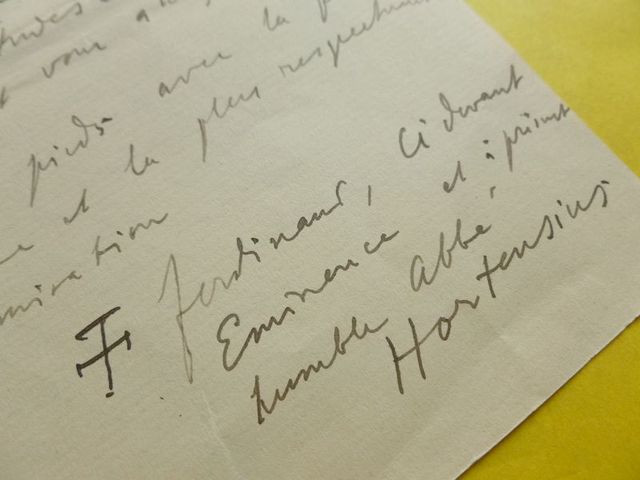 vous
pieds avec la
et la plus respectueuse
miration
Ferdinand, Ci devant
Eminence et à présent
humble Abbé,
Hortensius